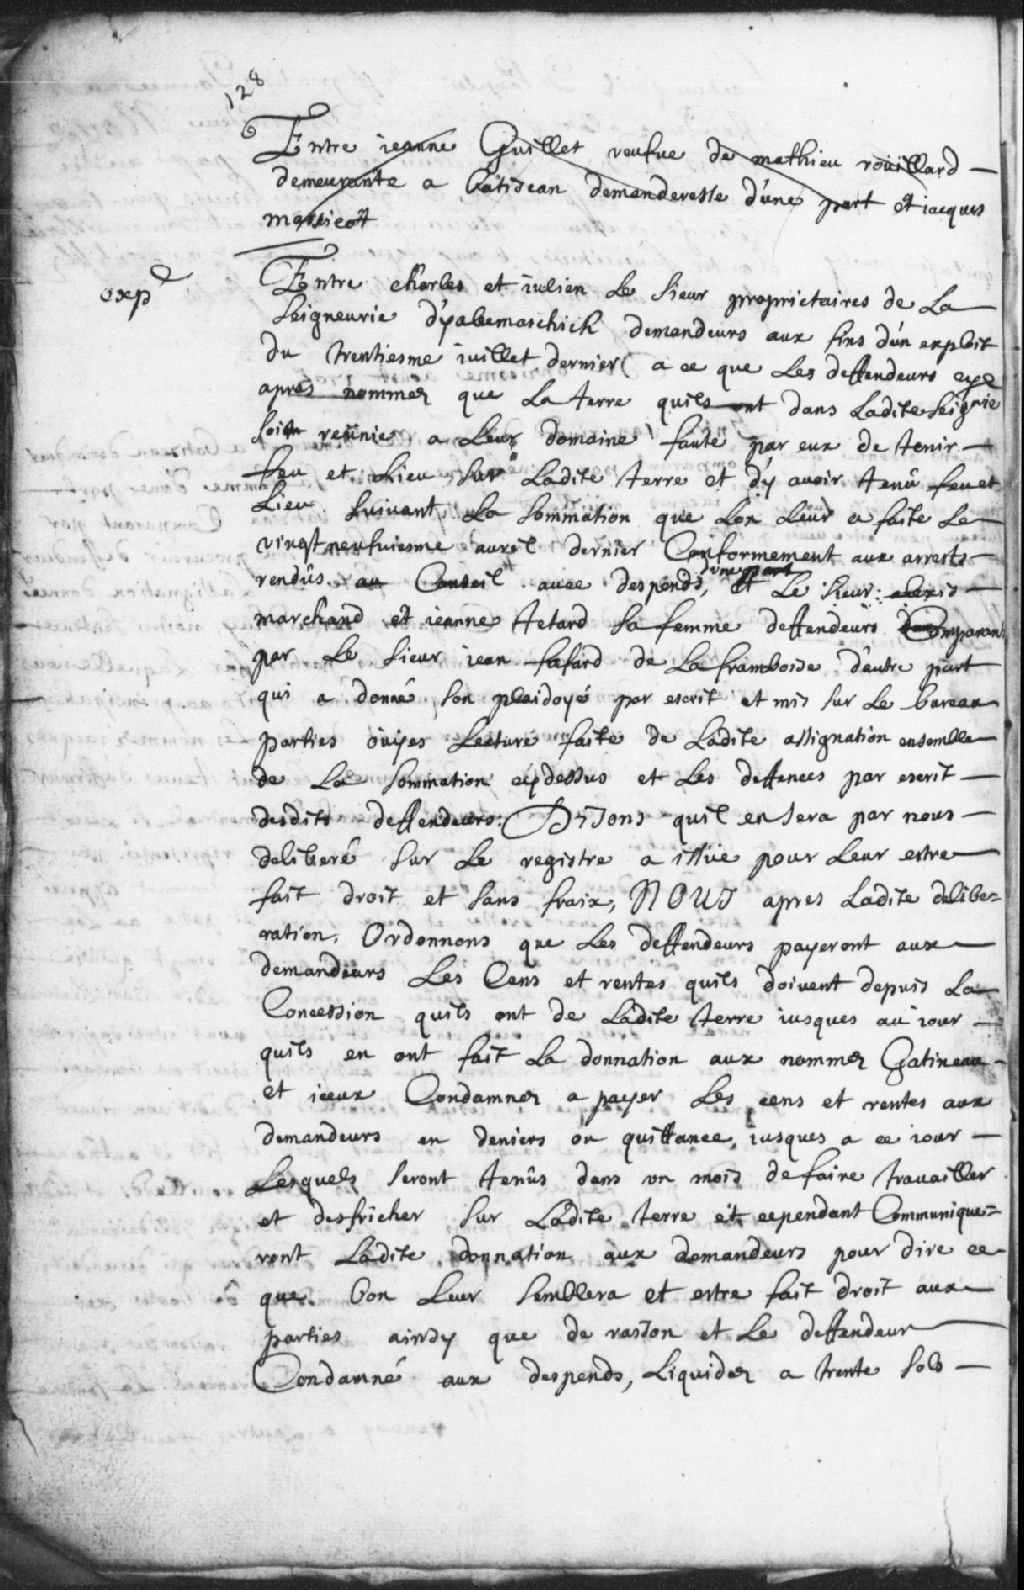 128
Entre jeanne Guillet veufue de mathieu rouillard
demeurante a batiscan demanderesse d'une part et jacques
massicot
exp
Entre charles et julien Le sieur proprietaires de La
seigneurie d'yabemaschich demandeurs aux fins d'un exploit
du trentiesme juillet dernier a ce que Les deffendeurs cye
apres nommez que La terre quils ont dans Ladite seigrie
soit reünie a Leur domaine faute par eux de tenir
feu et Lieu sur Ladite terre et d'y avoir tenû feu et
Lieu suivant La sommation que Lon Leur a faite Le
vingt neufuiesme auril dernier Conformement aux arrests
rendûs au Conseil auec despends, d'une part et Le sieur
marchand et jeanne tetard sa femme deffendeurs Comparan
par Le sieur jean fafard de Laframboise d'autre part
qui a donné son plaidoyé par escrit et mis sur Le bureau
parties oüyes Lecture faite de Ladite assignation ensemble
de La sommation cy dessus et Les deffences par escrit
desdits deffendeurs. Disons quil en sera par nous
deliberé sur Le registre a issüe pour Leur estre
fait droit et sans fraix, NOUS apres Ladite delibe=
ration, Ordonnons que Les deffendeurs payeront aux
demandeurs Les Cens et rentes quils doivent depuis La
Concession quils ont de Ladite terre jusques au jour
quils en ont fait La donnation aux nommez Gatineau
et iceux Condamnez a payer Les cens et rentes aux
demandeurs en deniers ou quittance, jusques a ce jour
Lesquels seront tenûs dans un mois de faire trauailler
et desfricher sur Ladite terre et cependant Communique=
ront Ladite donnation aux demandeurs pour dire ce
que bon Leur semblera et estre fait droit aux
parties ainsy que de raison et Le deffendeur
Condamné aux despends, Liquidez a trente sols